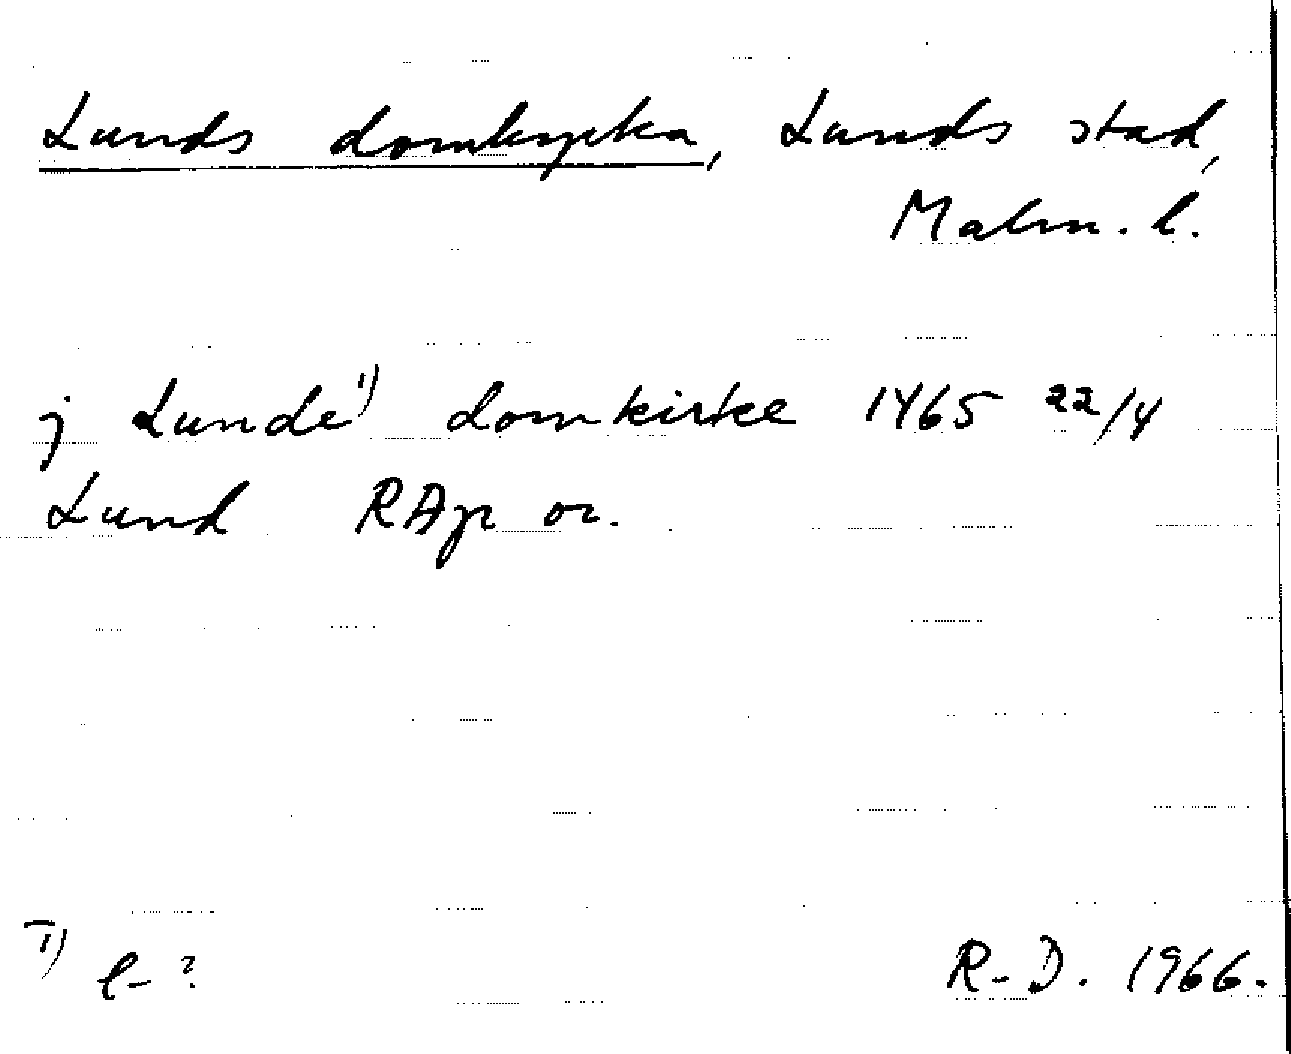 Lunds domkyrka, Lunds stad,
Malm. l.
j Lunde 1) domkirke 1465 22/4
Lund RAp or.
1) l- ?
R-D. 1966.